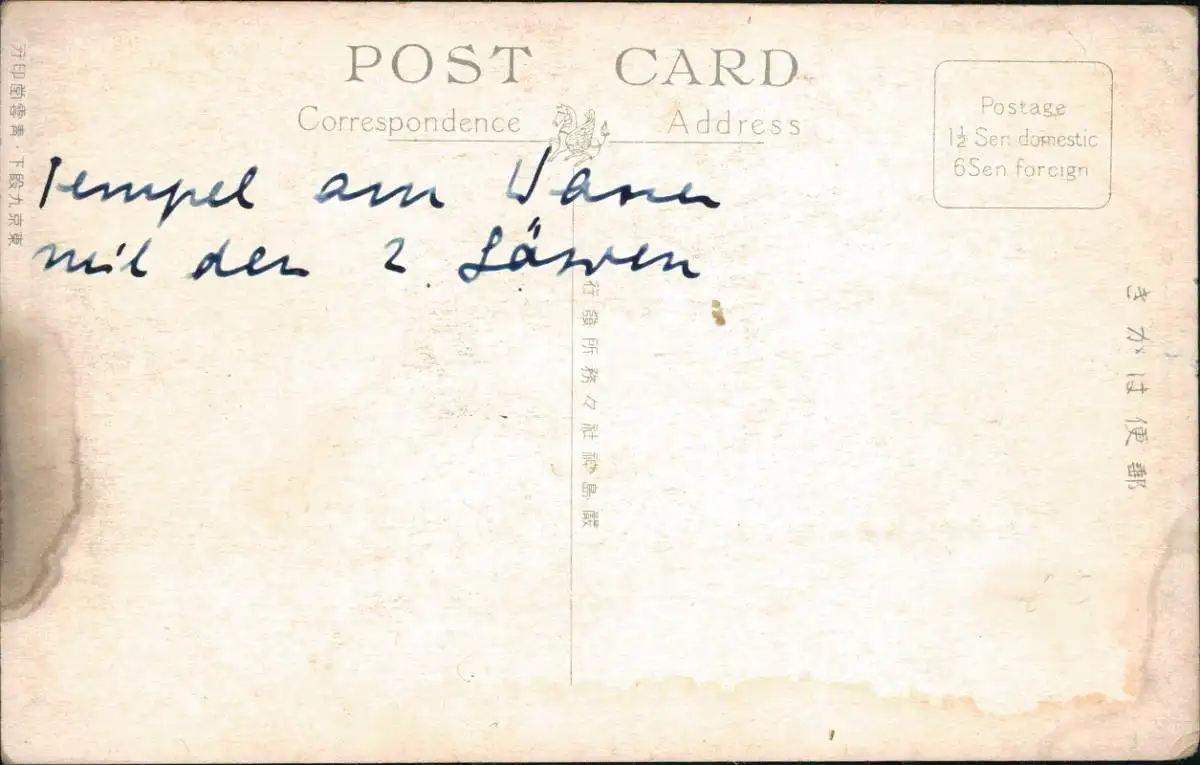 POST CARD
Correspondence Address
Postage
1½ Sen domestic
6 Sen foreign
Tempel am Wasser
mit den 2 Löwen
東京九段下・青雲堂印刋
嚴島神社々務所發行
郵便はかき